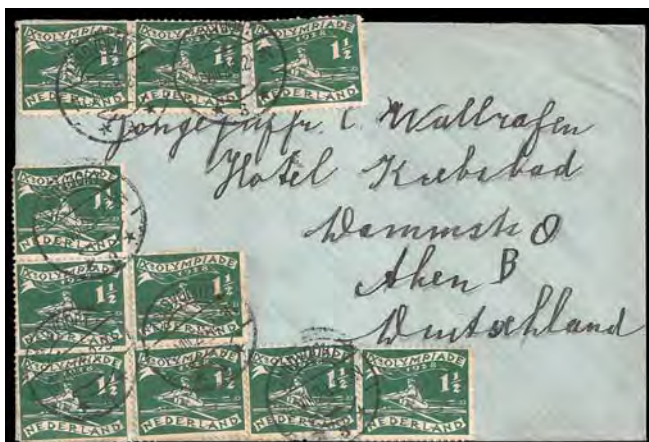 IXe OLYMPIADE 1928 1½ NEDERLAND
IXe OLYMPIADE 1928 1½ NEDERLAND
IXe OLYMPIADE 1928 1½ NEDERLAND
Jongejuffr. C. Wallrafen
Hotel Krebsbad
Ahen B
Deutschland
IXe OLYMPIADE 1928 1½ NEDERLAND
IXe OLYMPIADE 1928 1½ NEDERLAND
IXe OLYMPIADE 1928 1½ NEDERLAND
IXe OLYMPIADE 1928 1½ NEDERLAND
IXe OLYMPIADE 1928 1½ NEDERLAND
IXe OLYMPIADE 1928 1½ NEDERLAND
IXe OLYMPIADE 1928 1½ NEDERLAND